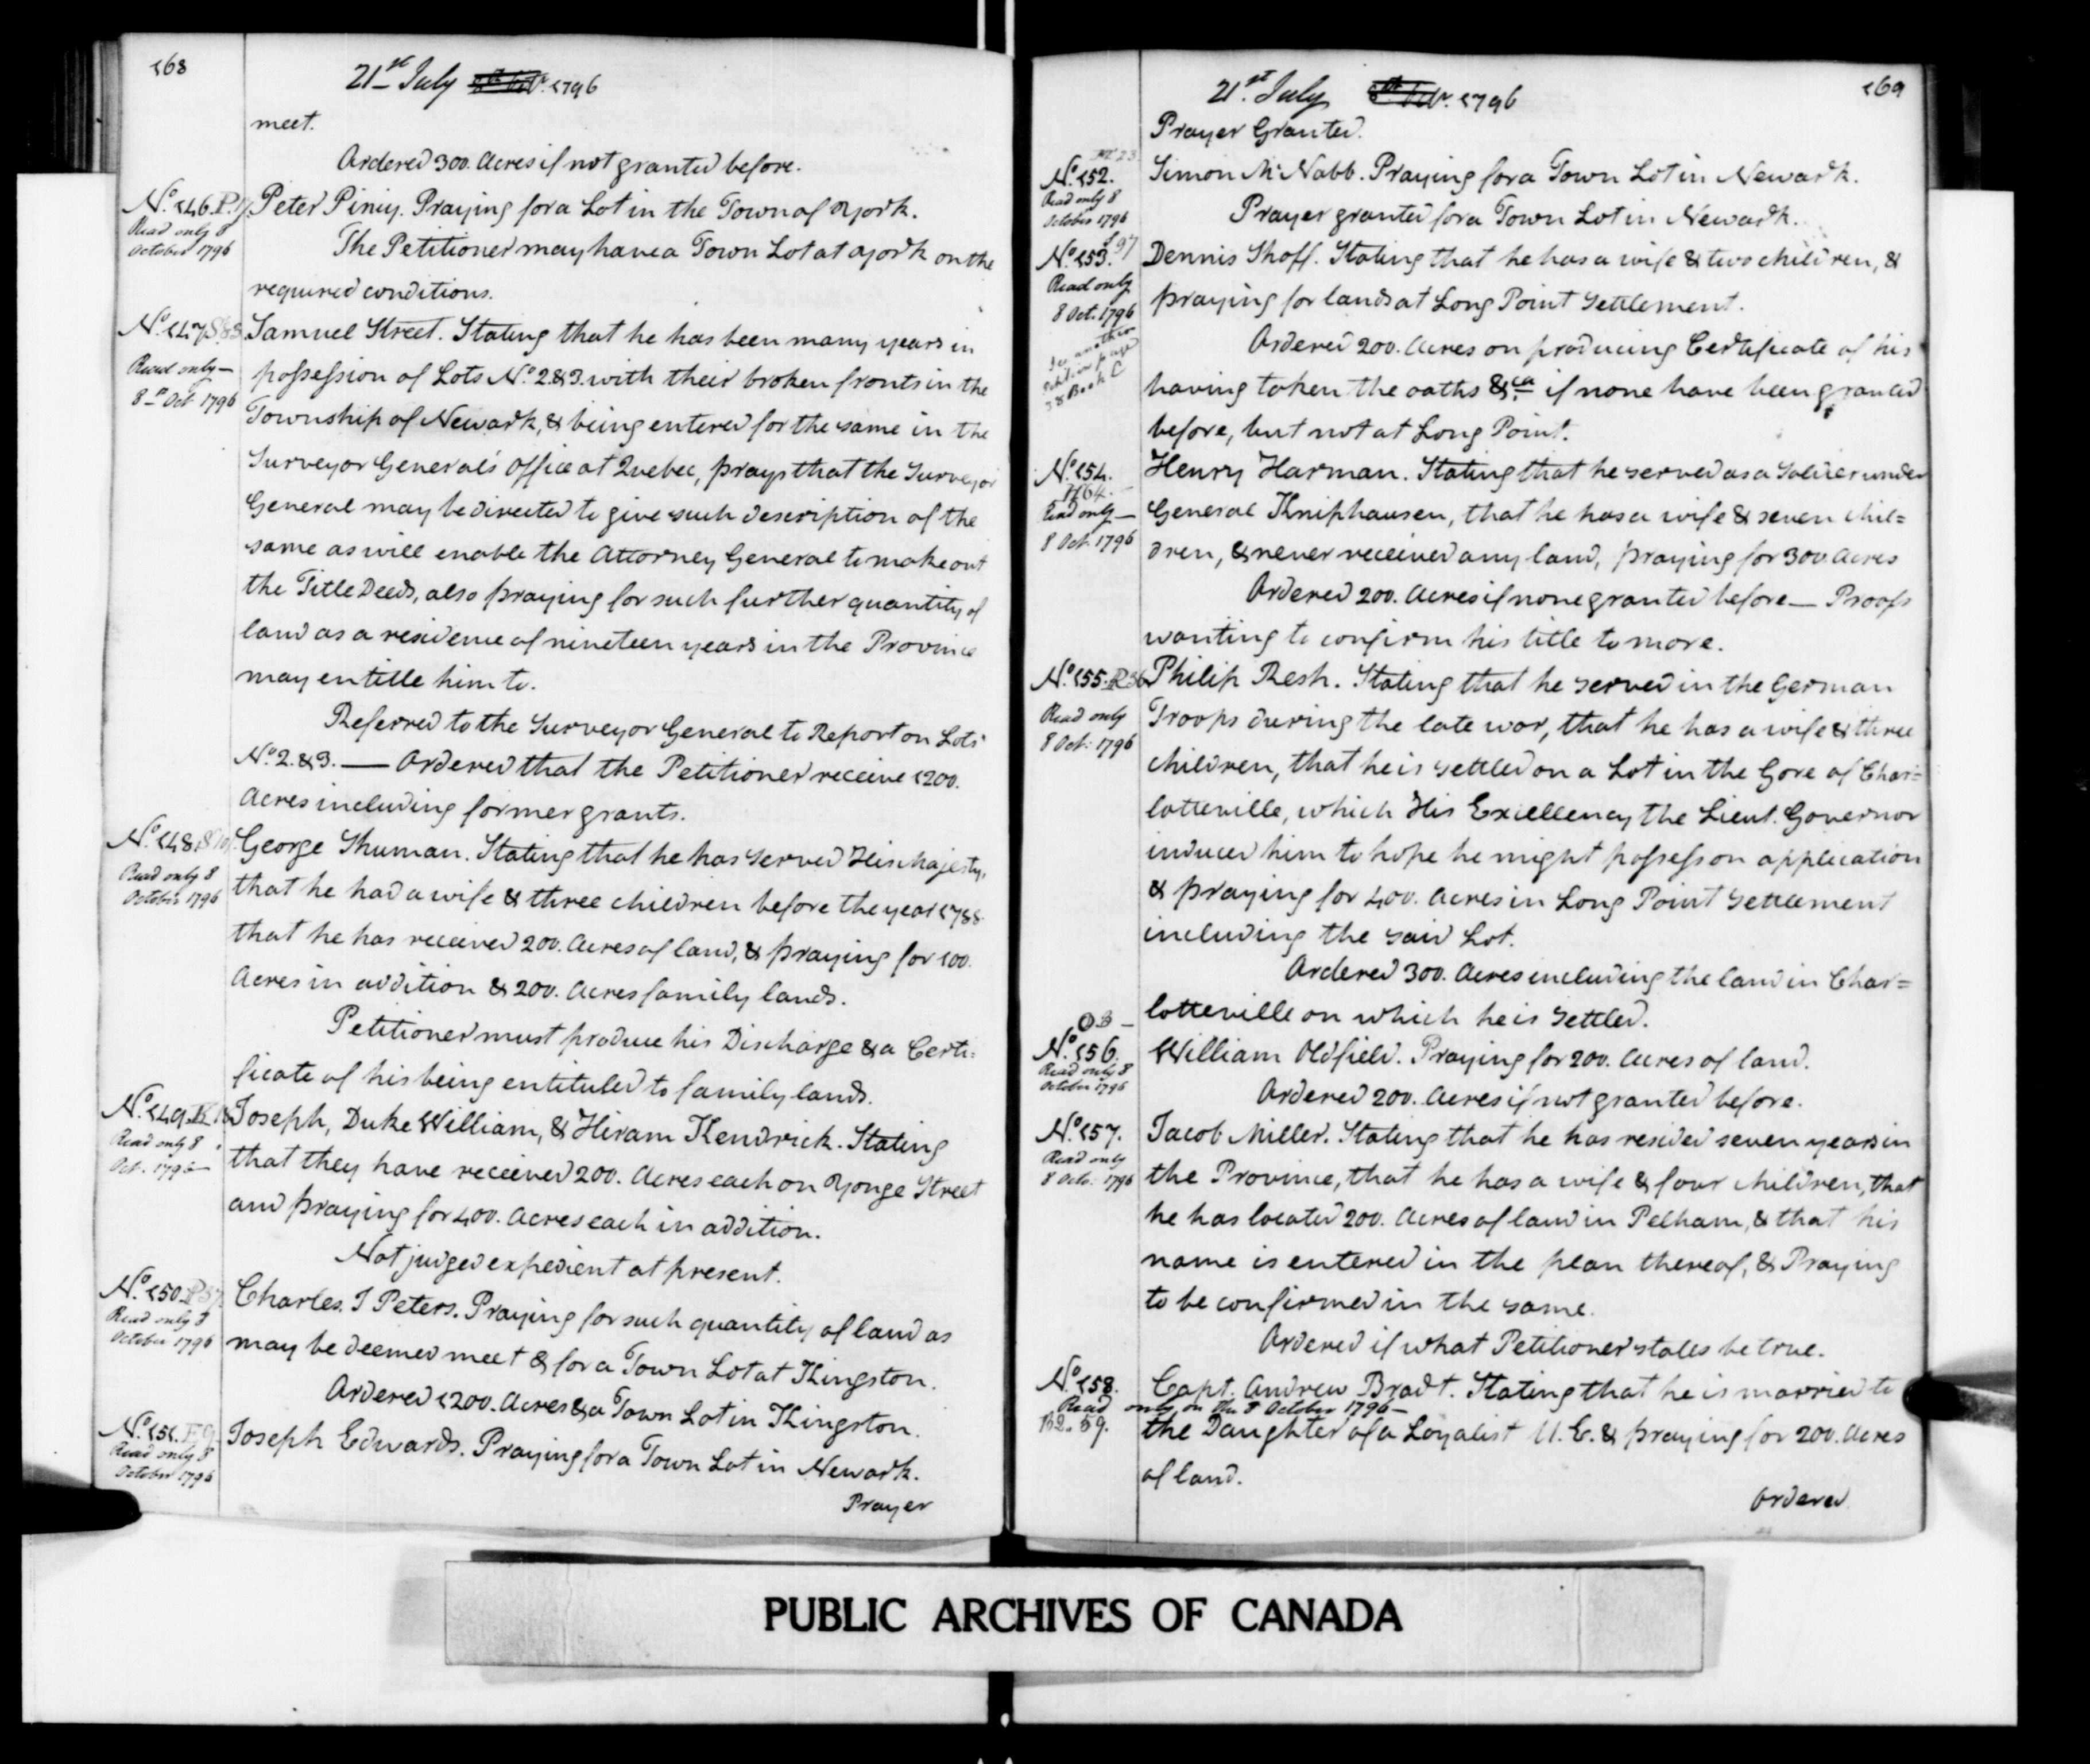 168
21st July 8th Octr. 1796
meet.
Ordered 300. Acres if not granted before.
No. 146. P. 1
Peter Piniy. Praying for a Lot in the Town of York.
Read only 8
October 1796
The Petitioner may have a Town Lot at York on the
required conditions.
No. 147 S. 83
Samuel Street. Stating that he has been many years in
Read only —
8th Oct. 1796
possession of Lots No. 2. & 3. with their broken fronts in the
Township of Newark, & being entered for the same in the
Surveyor General's Office at Quebec, prays that the Surveyor
General may be directed to give such description of the
same as will enable the Attorney General to make out
the Title Deeds, also praying for such further quantity of
land as a residence of nineteen years in the Province
may entitle him to.
Referred to the Surveyor General to Report on Lots
No. 2. & 3. — Ordered that the Petitioner receive 1200.
Acres including former grants.
No. 148.
George Shuman. Stating that he has served His Majesty,
Read only 8
October 1796
that he had a wife & three children before the year 1788
that he has received 200. Acres of land, & praying for 100.
Acres in addition & 200. Acres family lands.
Petitioner must produce his Discharge & a Certi=
ficate of his being entituled to family lands.
No. 149. K. 1
Joseph, Duke William, & Hiram Kendrick. Stating
Read only 8
Oct. 1796 —
that they have received 200. Acres each on Yonge Street
and praying for 400. Acres each in addition.
Not judged expedient at present.
No. 150. P 37
Charles. J Peters. Praying for such quantity of land as
Read only 8
October 1796
may be deemed meet & for a Town Lot at Kingston.
Ordered 1200. Acres & a Town Lot in Kingston.
No. 151. E 9.
Joseph Edwards. Praying for a Town Lot in Newark.
Read only 8
October 1796
Prayer
169
21st. July 8th Octr. 1796
Prayer Granted.
M 23
No. 152.
Simon McNabb. Praying for a Town Lot in Newark.
Read only 8
October 1796
Prayer granted for a Town Lot in Newark.
S 97
No. 153.
Dennis Shoff. Stating that he has a wife & two children, &
Read only
8 Oct. 1796
praying for lands at Long Point Settlement.
See another
Petition page
38 Book C
Ordered 200. Acres on producing Certificate of his
having taken the oaths &ca. if none have been granted
before, but not at Long Point.
No. 154.
H 64.
Henry Harman. Stating that he served as a Soldier under
Read only —
8 Oct. 1796
General Kniphausen, that he has a wife & seven chil=
dren, & never received any land, praying for 300. Acres
Ordered 200. Acres if none granted before — Proofs
wanting to confirm his title to more.
No. 155. R 36
Philip Resh. Stating that he served in the German
Read only
8 Oct. 1796
Troops during the late war, that he has a wife & three
children, that he is settled on a Lot in the Gore of Char=
lotteville, which His Excellency the Lieut. Governor
induced him to hope he might possess on application
& praying for 400. Acres in Long Point Settlement
including the said Lot.
Ordered 300. Acres including the land in Char=
lotteville on which he is settled.
O 3 —
No. 156.
William Oldfield. Praying for 200. Acres of land.
Read only 8
October 1796
Ordered 200. Acres if not granted before.
No. 157.
Jacob Miller. Stating that he has resided seven years in
Read only
8 Octr. 1796
the Province, that he has a wife & four children, that
he has located 200. Acres of land in Pelham, & that his
name is entered in the plan thereof, & Praying
to be confirmed in the same.
Ordered if what Petitioner states be true.
No. 158.
Capt. Andrew Bradt. Stating that he is married to
Read only on the 8 October 1796 —
B2. 59.
the Daughter of a Loyalist U.E. & praying for 200. Acres
of land.
Ordered
PUBLIC ARCHIVES OF CANADA